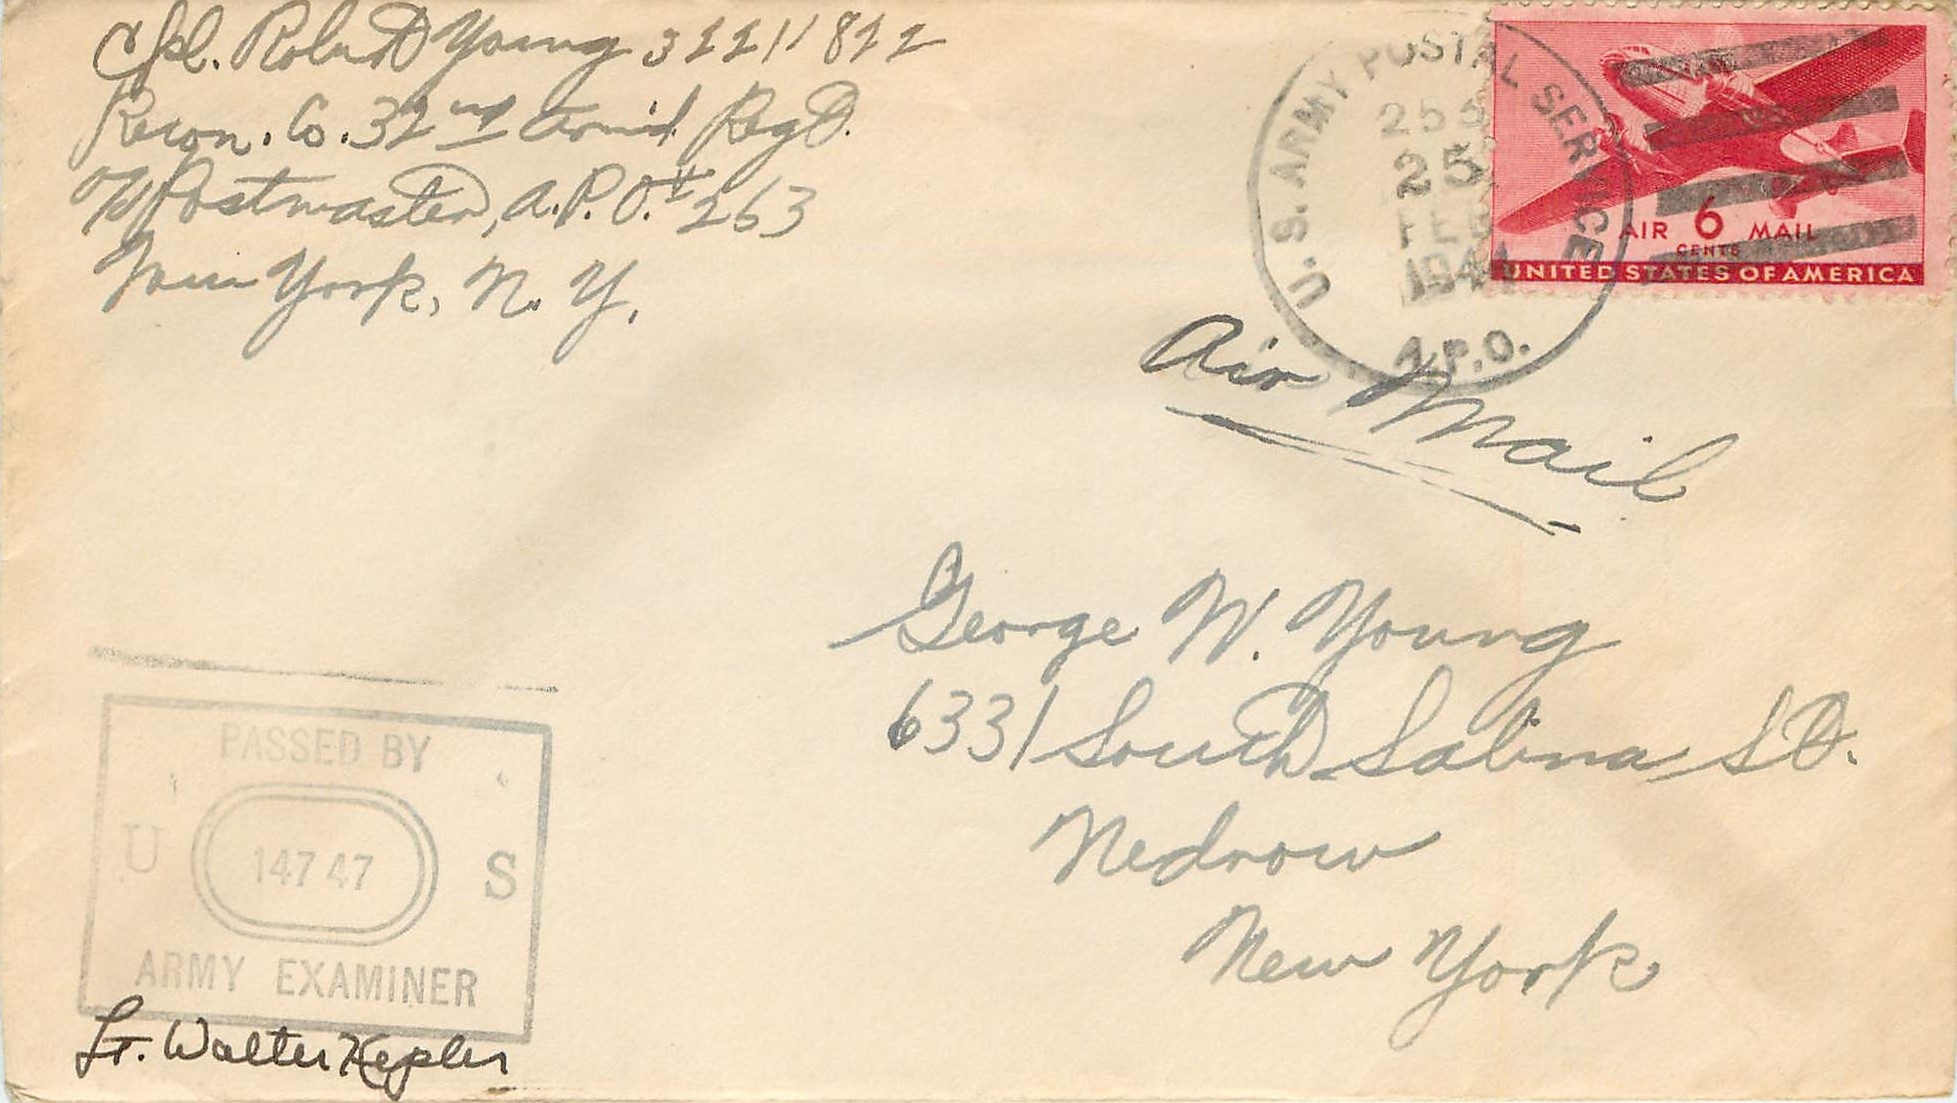 Cpl. Robert Young 32211822
Recon. Co. 32nd Arm'd Regt.
℅ Postmaster, A.P.O. # 263
New York, N. Y.
U.S. ARMY POSTAL SERVICE
25
FEB
1944
A.P.O.
AIR 6 MAIL
CENTS
UNITED STATES OF AMERICA
Air Mail
George W. Young
6331 South Salina St.
Nedrow
New York
PASSED BY
U 14747 S
ARMY EXAMINER
Lt. Walter Kepler